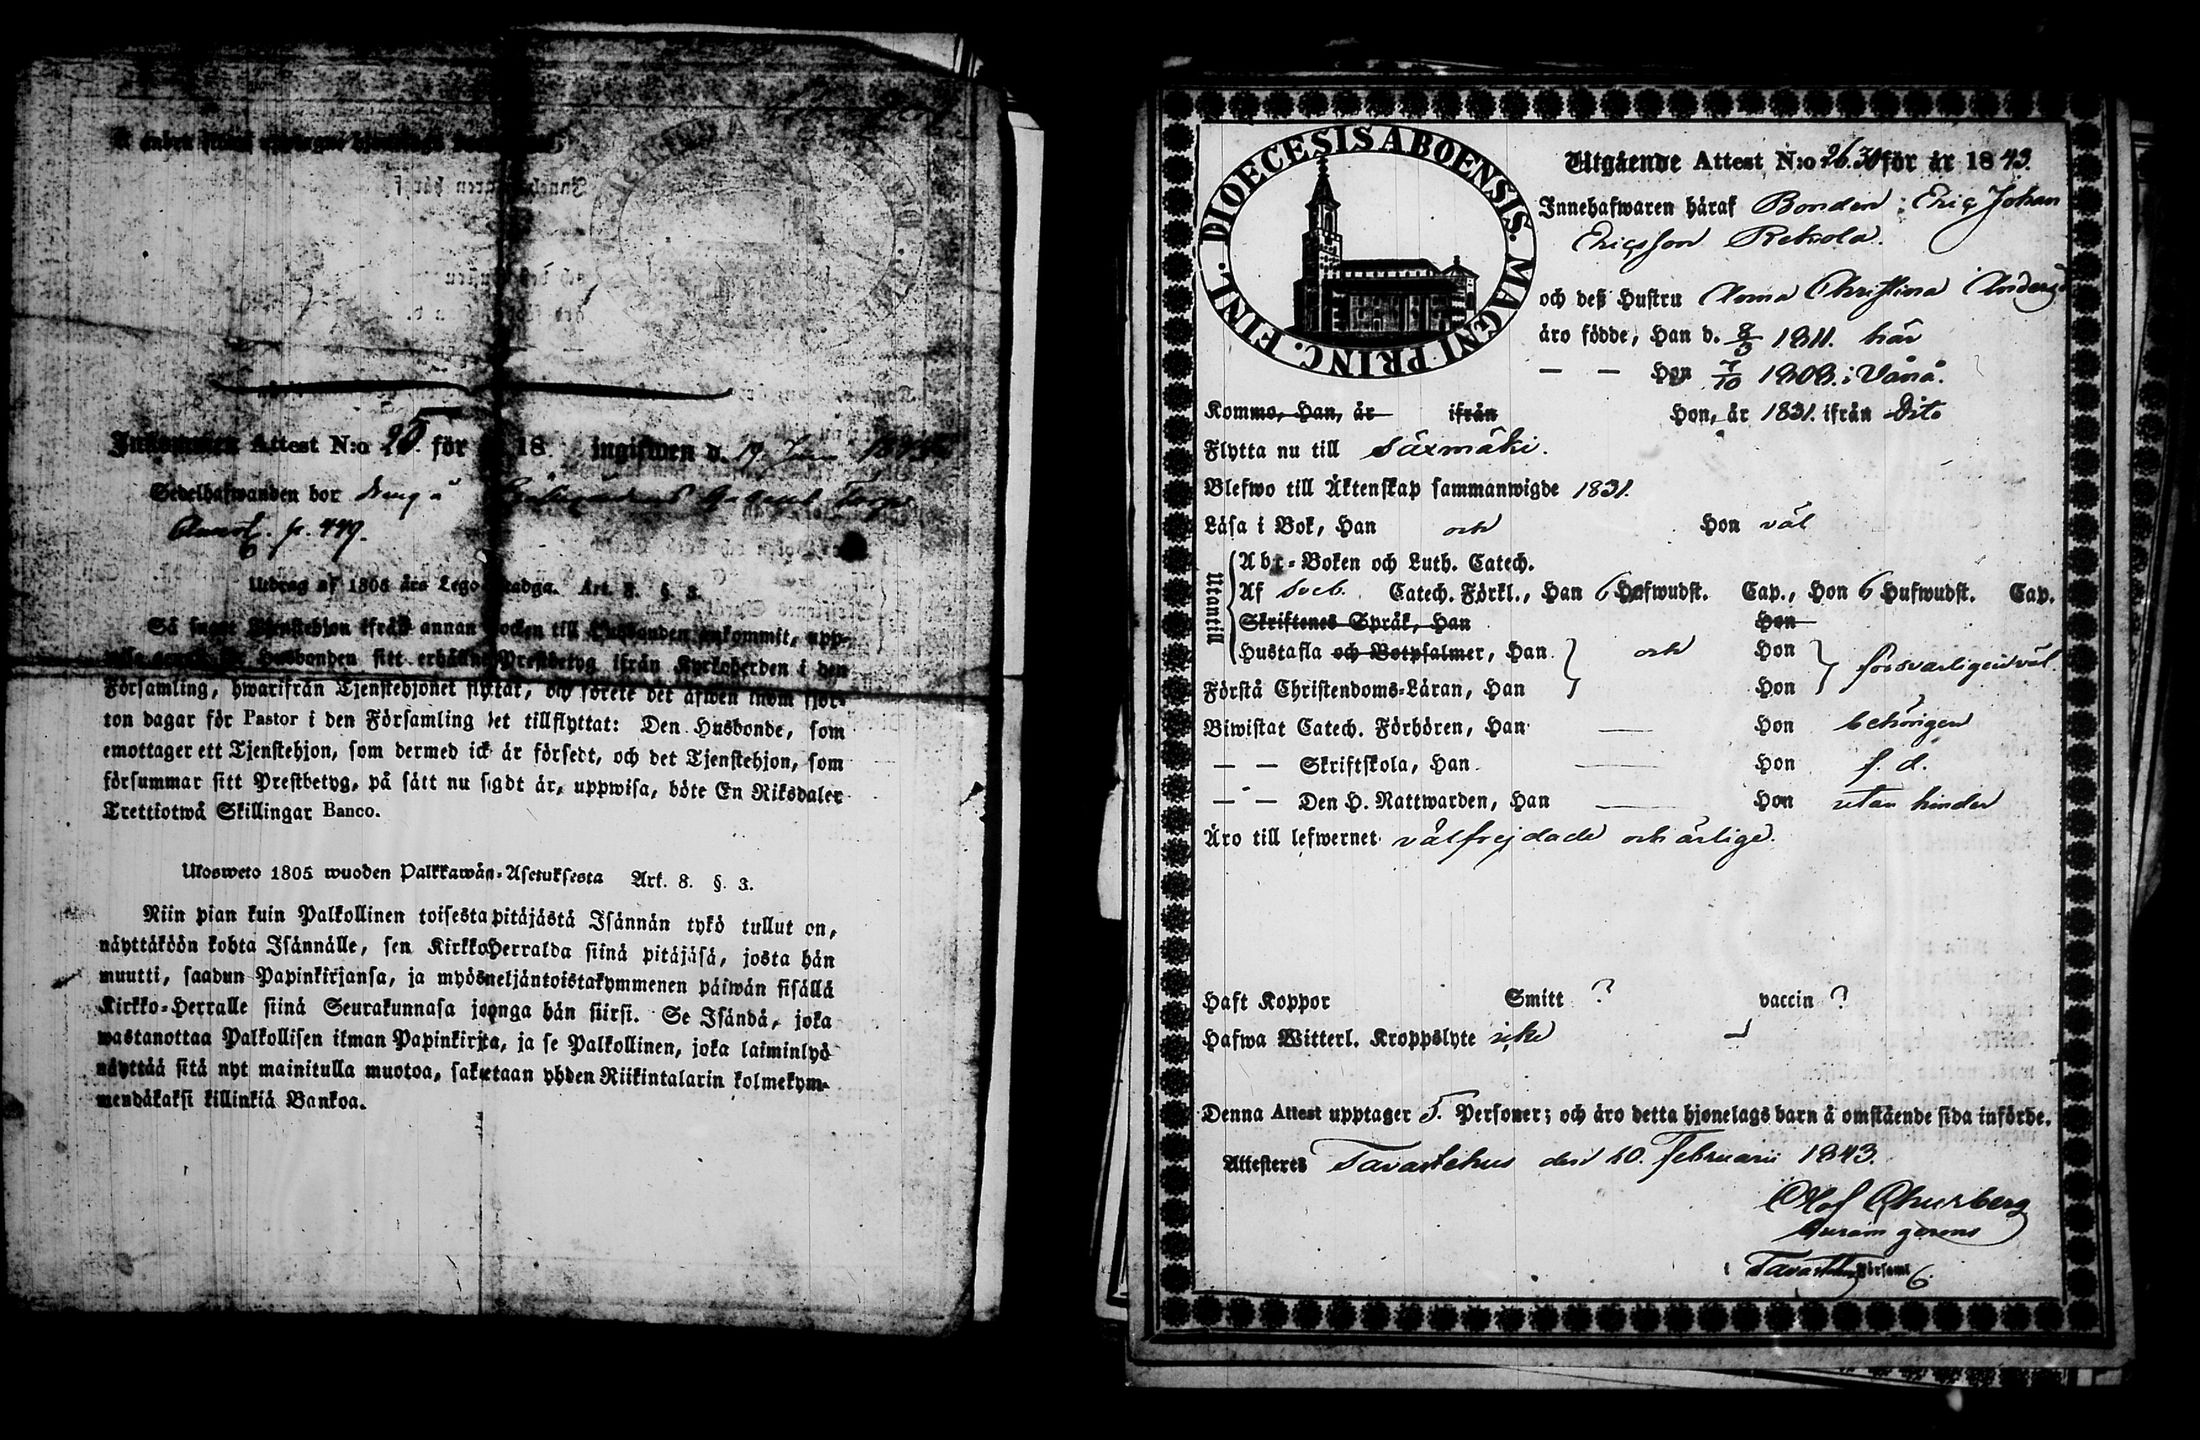 Attest N:o 25 för 18 ingifwen d. 19. Juni
Sedelhafwanden bor
Utdrag af 1805 års Lego-Stadga. Art. 8. §. 3.
Så snart Tjenstehjon ifrån annan Socken till Husbonden ankommit, upp-
Husbonden sitt erhållne Prestbetyg ifrån Kyrkoherden i den
Församling, hwarifrån Tjenstehjonet flyttat, och förete det äfwen inom fjor-
ton dagar för Pastor i den Församling det tillflyttat: Den Husbonde, som
emottager ett Tjenstehjon, som dermed ick är försedt, och det Tjenstehjon, som
försummar sitt Prestbetyg, på sätt nu sagdt är, uppwisa, böte En Riksdaler
Trettiotwå Skillingar Banco.
Ulosweto 1805 wuoden Palkkawän-Asetuksesta Art. 8. §. 3.
Niin pian kuin Palkollinen toisesta pitäjästä Isännän tykö tullut on,
näyttäköön kohta Isännälle, sen KirkkoHerralda siinä pitäjäsä, josta hän
muutti, saadun Papinkirjansa, ja myös neljäntoistakymmenen päiwän sisällä
Kirkko-Herralle siinä Seurakunnasa jonnga hän siirsi. Se Isändä, joka
wastanottaa Palkollisen ilman Papinkirjta, ja se Palkollinen, joka laiminlyö
näyttää sitä nyt mainitulla muotoa, saketaan yhden Riikintalarin kolmekym-
mendäkaksi killinkiä Bankoa.
DIOECESIS ABOENSIS. MAGNI PRINC. FINL.
Utgående Attest N:o 26.30 för år 1843.
Innehafwaren häraf Bonden Eric Johan
Ericsson Rekola.
och deß Hustru Anna Christina Andersd
äro födde, Han d. 8/3 1811. här
— — Hon 7/10 1808. i Vånå.
Kommo, Han, år ifrån Hon, år 1831. ifrån Dito
Flytta nu till Säxmäki.
Blefwo till Äktenskap sammanwigde 1831.
Läsa i Bok, Han och Hon väl
Utantill
Abc-Boken och Luth. Catech.
Af Sveb. Catech. Förkl., Han 6 Hufwudst. Cap., Hon 6 Hufwudst. Cap.
Skriftenes Språk, Han Hon
Hustafla och Botpsalmer, Han och Hon
försvarligen väl
Förstå Christendoms-Läran, Han Hon
Biwistat Catech. Förhören, Han — Hon behörigen
— — Skriftskola, Han — Hon s. d.
— — Den H. Nattwarden, Han — Hon utan hinder
Äro till lefwernet välfrejdade och ärlige.
Haft Koppor Smitt ? vaccin ?
Hafwa Witterl. Kroppslyte icke
Denna Attest upptager 5. Personer; och äro detta hjonelags barn å omstående sida införde.
Attesteres Tavastehus den 10. Februarii 1843.
Olof Churberg
Curam gerens
i Församl